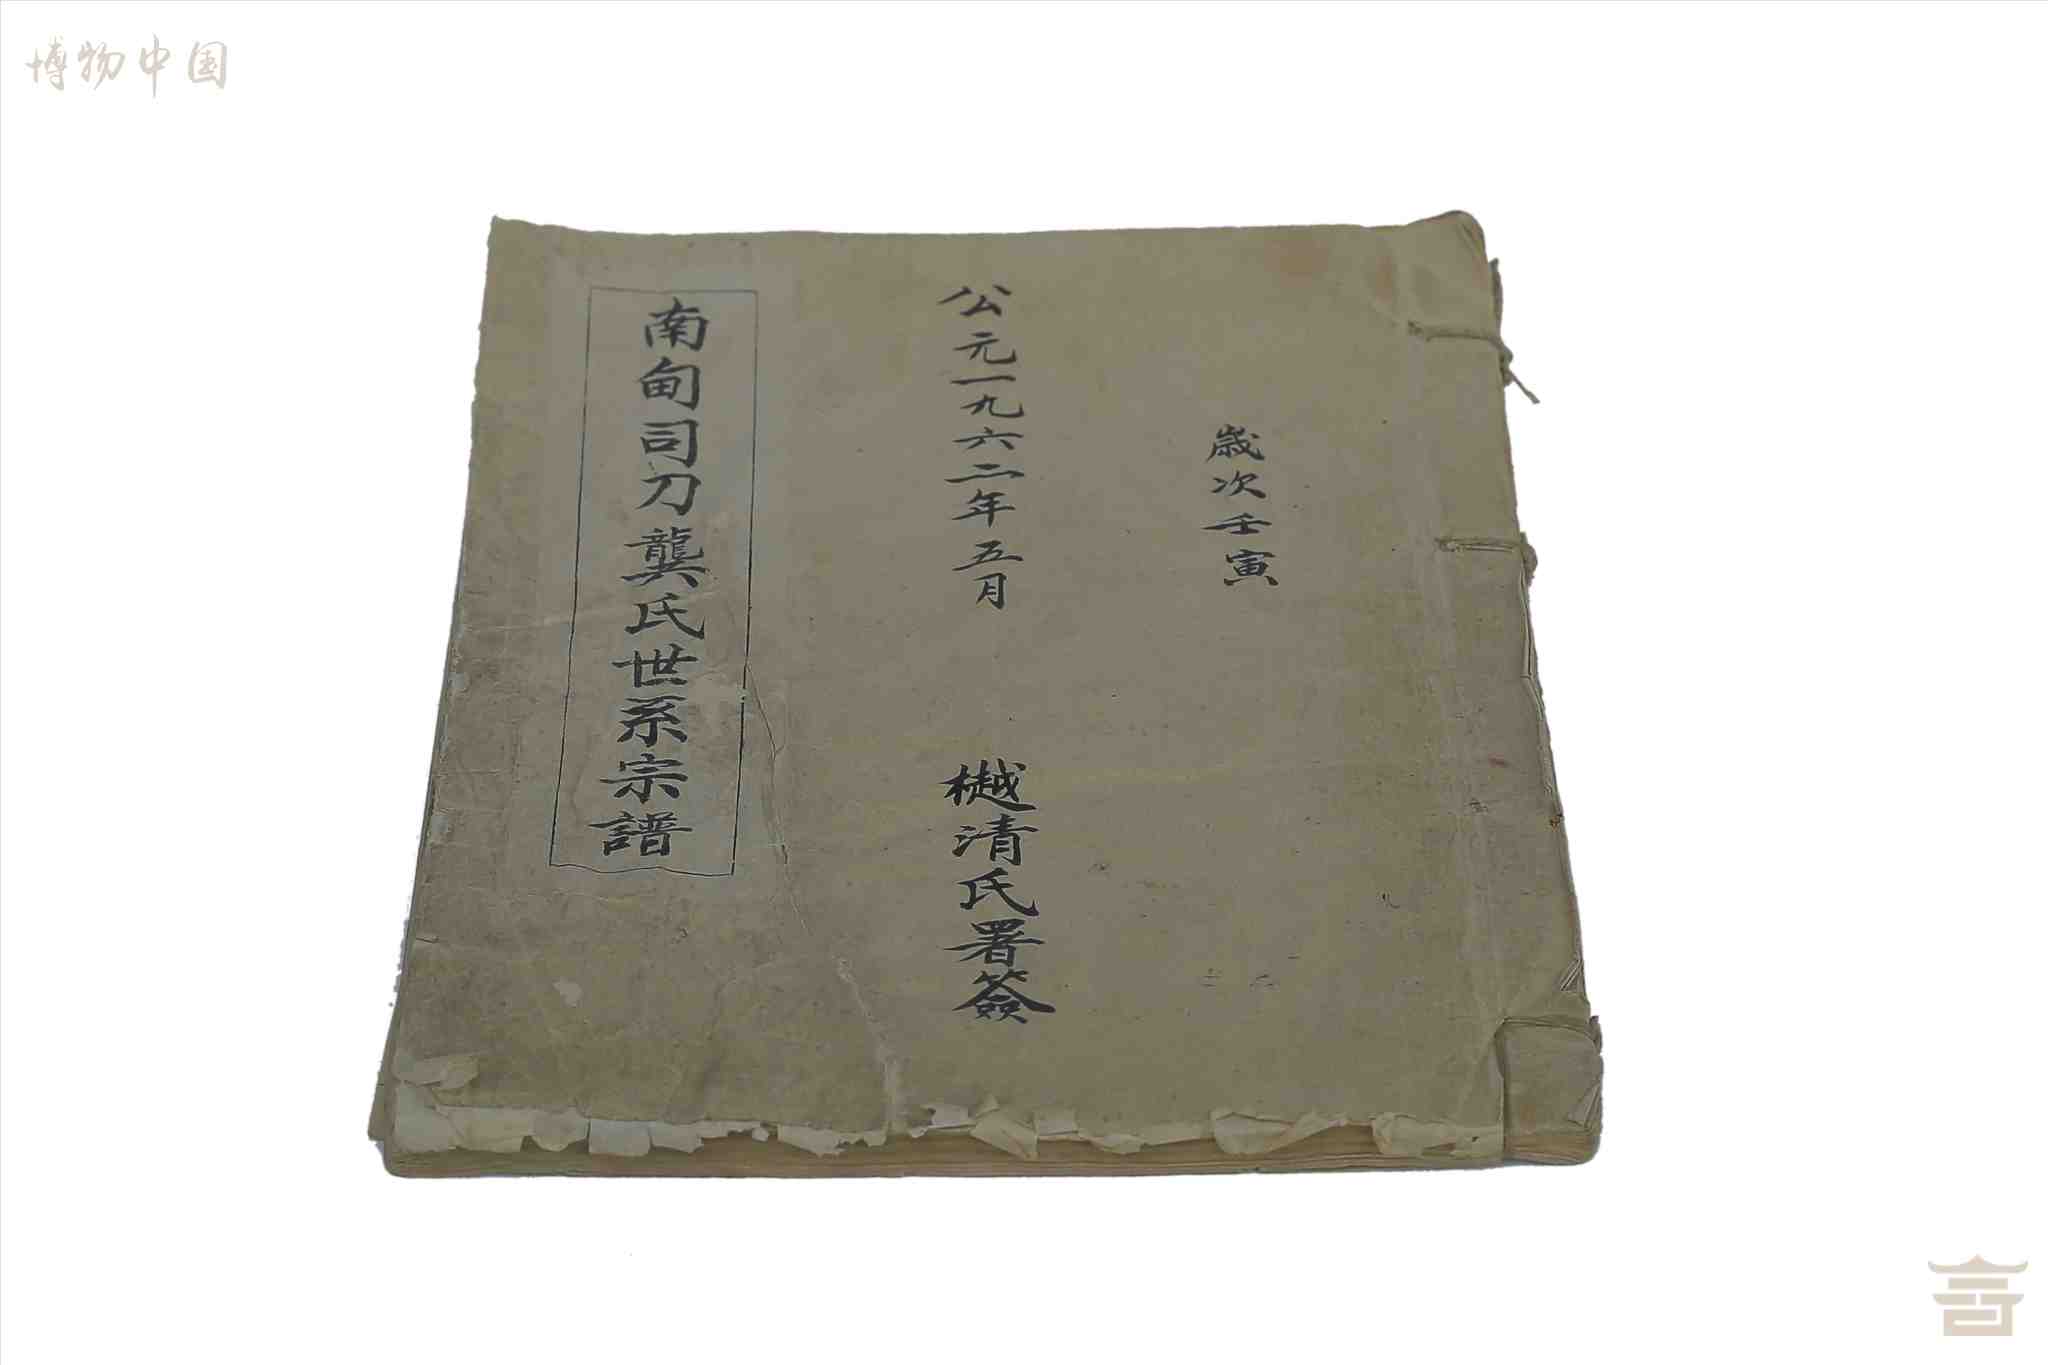 博物中国
歲次壬寅
公元一九六二年五月
樾清氏署簽
南甸司刀龔氏世系宗譜